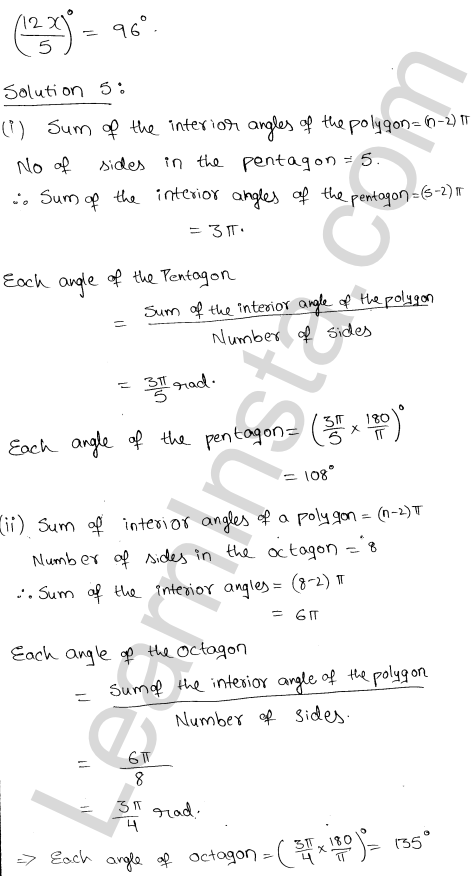 (12x/5)° = 96°.
Solution 5:
(i) Sum of the interior angles of the polygon=(n-2)π
No of sides in the pentagon = 5.
∴ Sum of the interior angles of the pentagon=(5-2)π
= 3π.
Each angle of the Pentagon
= Sum of the interior angle of the polygon / Number of sides
= 3π/5 rad.
Each angle of the pentagon = (3π/5 × 180/π)°
= 108°
(ii) Sum of interior angles of a polygon = (n-2)π
Number of sides in the octagon = 8
∴ Sum of the interior angles = (8-2) π
= 6π
Each angle of the octagon
= Sum of the interior angle of the polygon / Number of sides.
= 6π/8
= 3π/4 rad.
=> Each angle of octagon = (3π/4 × 180/π)° = 135°
LearnInsta.com